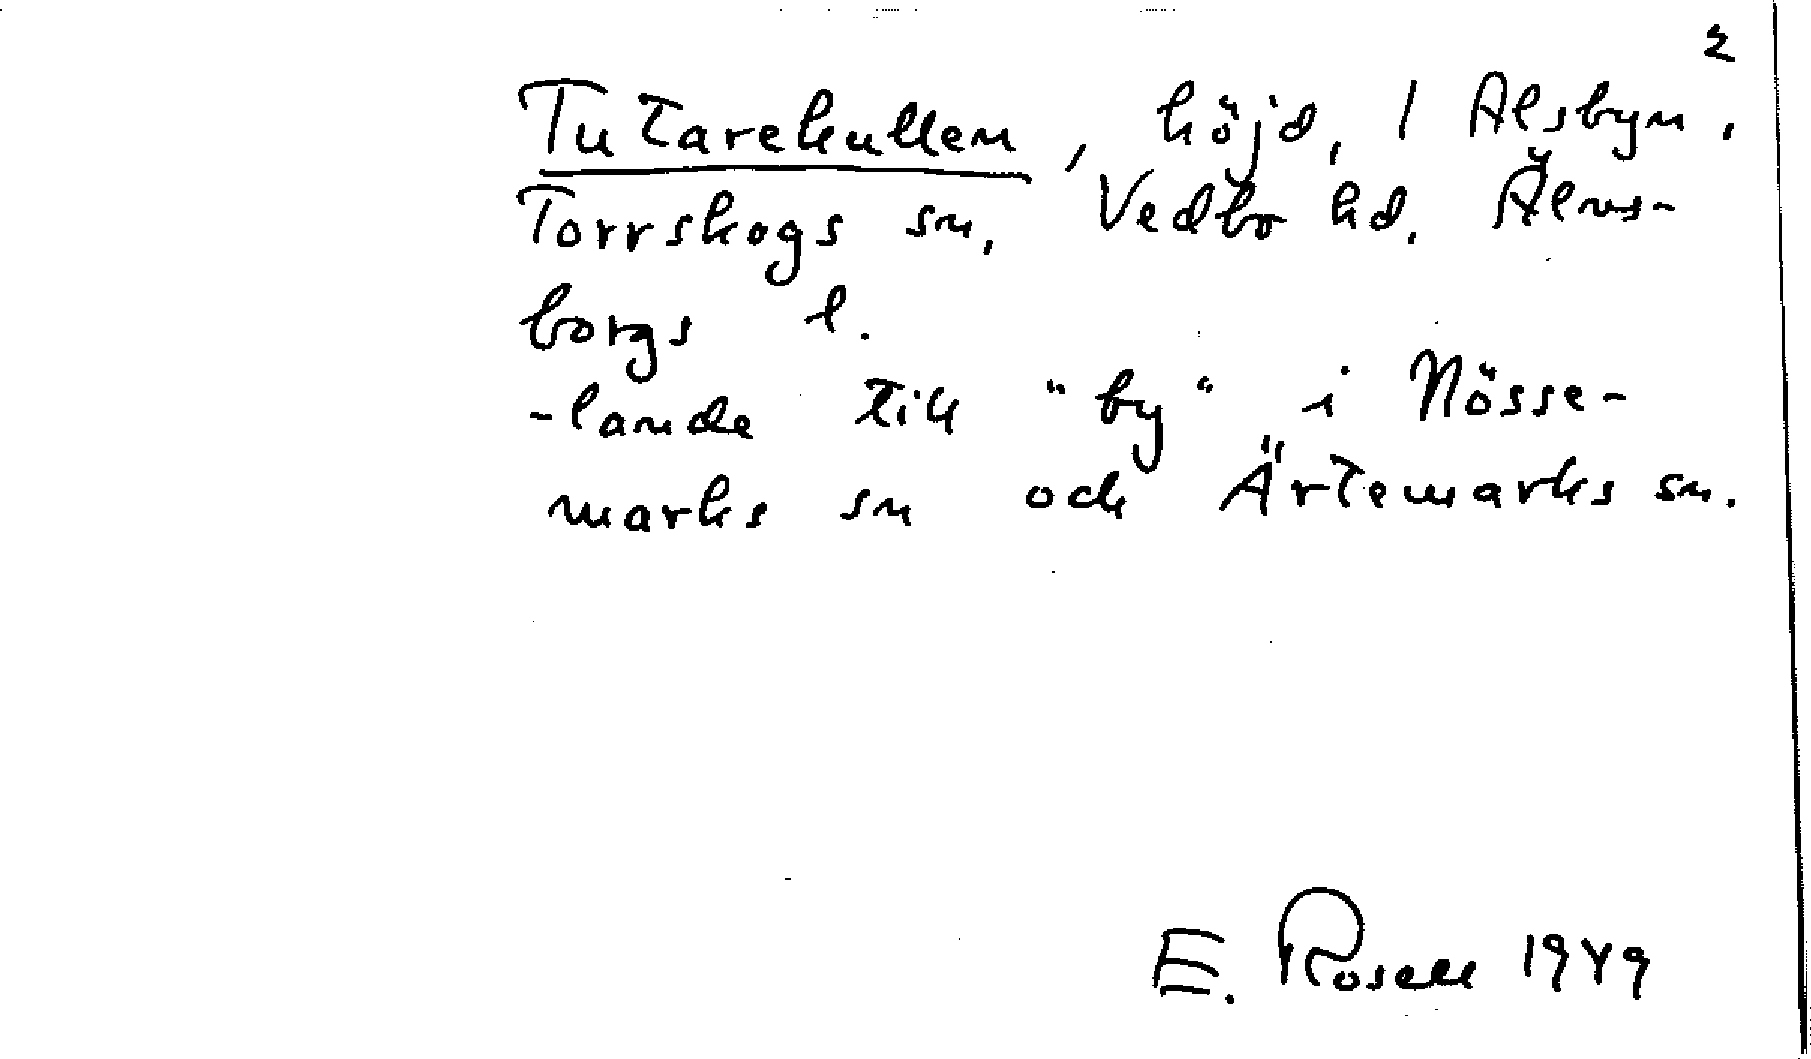 2
Tutarekullen, höjd, 1 Alsbyn,
Torrskogs sn, Vedbo hd. Älvs-
borgs l.
-lande till "by" i Nösse-
marks sn och Ärtemarks sn.
E. Rosell 1949